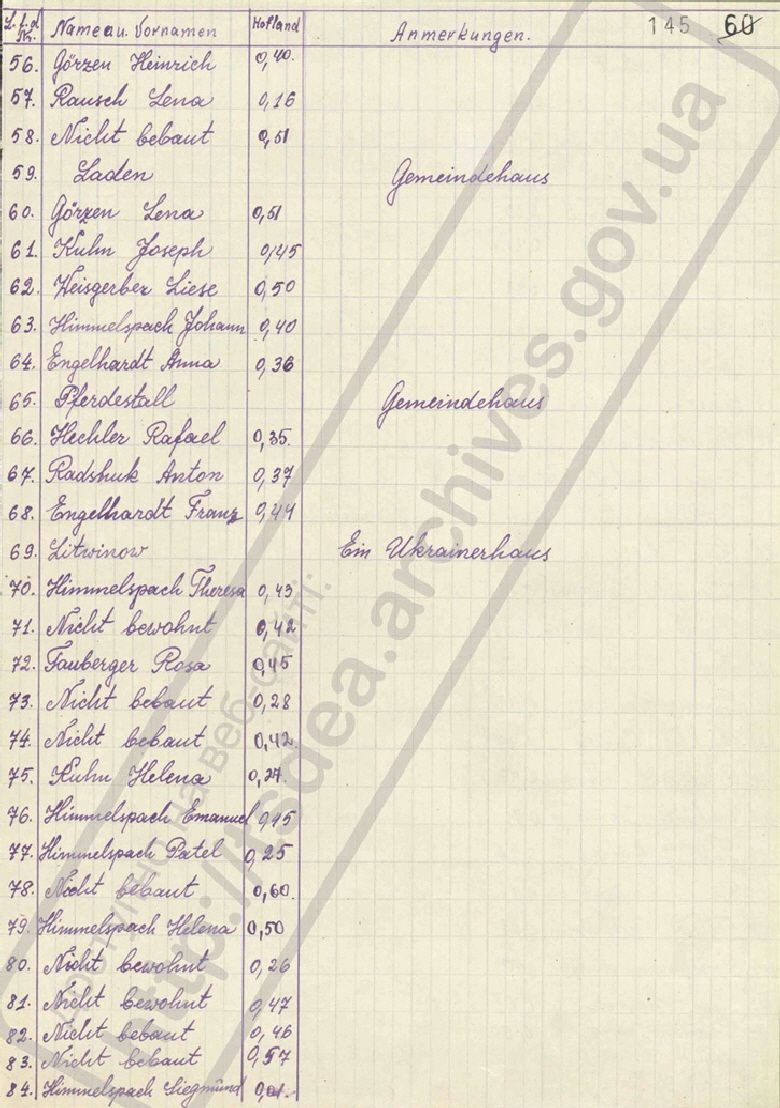 L.f.d. Nr. Name u. Vornamen Hofland Anmerkungen. 145 60
56. Görzen Heinrich 0,40.
57. Rausch Lena 0,16
58. Nicht bebaut 0,51
59. Laden Gemeindehaus
60. Görzen Lena 0,51
61. Kuhn Joseph 0,45
62. Weisgerber Liese 0,50
63. Himmelspach Johann 0,40
64. Engelhardt Anna 0,36
65. Pferdestall Gemeindehaus
66. Hechler Rafael 0,35.
67. Radshuk Anton 0,37
68. Engelhardt Franz 0,44
69. Litwinow Ein Ukrainerhaus
70. Himmelspach Theresa 0,43
71. Nicht bewohnt 0,42
72. Fauberger Rosa 0,45
73. Nicht bebaut 0,28
74. Nicht bebaut 0,42.
75. Kuhn Helena 0,27.
76. Himmelspach Emanuel 0,45
77. Himmelspach Patel 0,25
78. Nicht bebaut 0,60.
79. Himmelspach Helena 0,50
80. Nicht bewohnt 0,26
81. Nicht bewohnt 0,47
82. Nicht bebaut 0,46
83. Nicht bebaut 0,57
84. Himmelspach Siegmund
Доступно на веб-сайті:
http://tsdea.archives.gov.ua